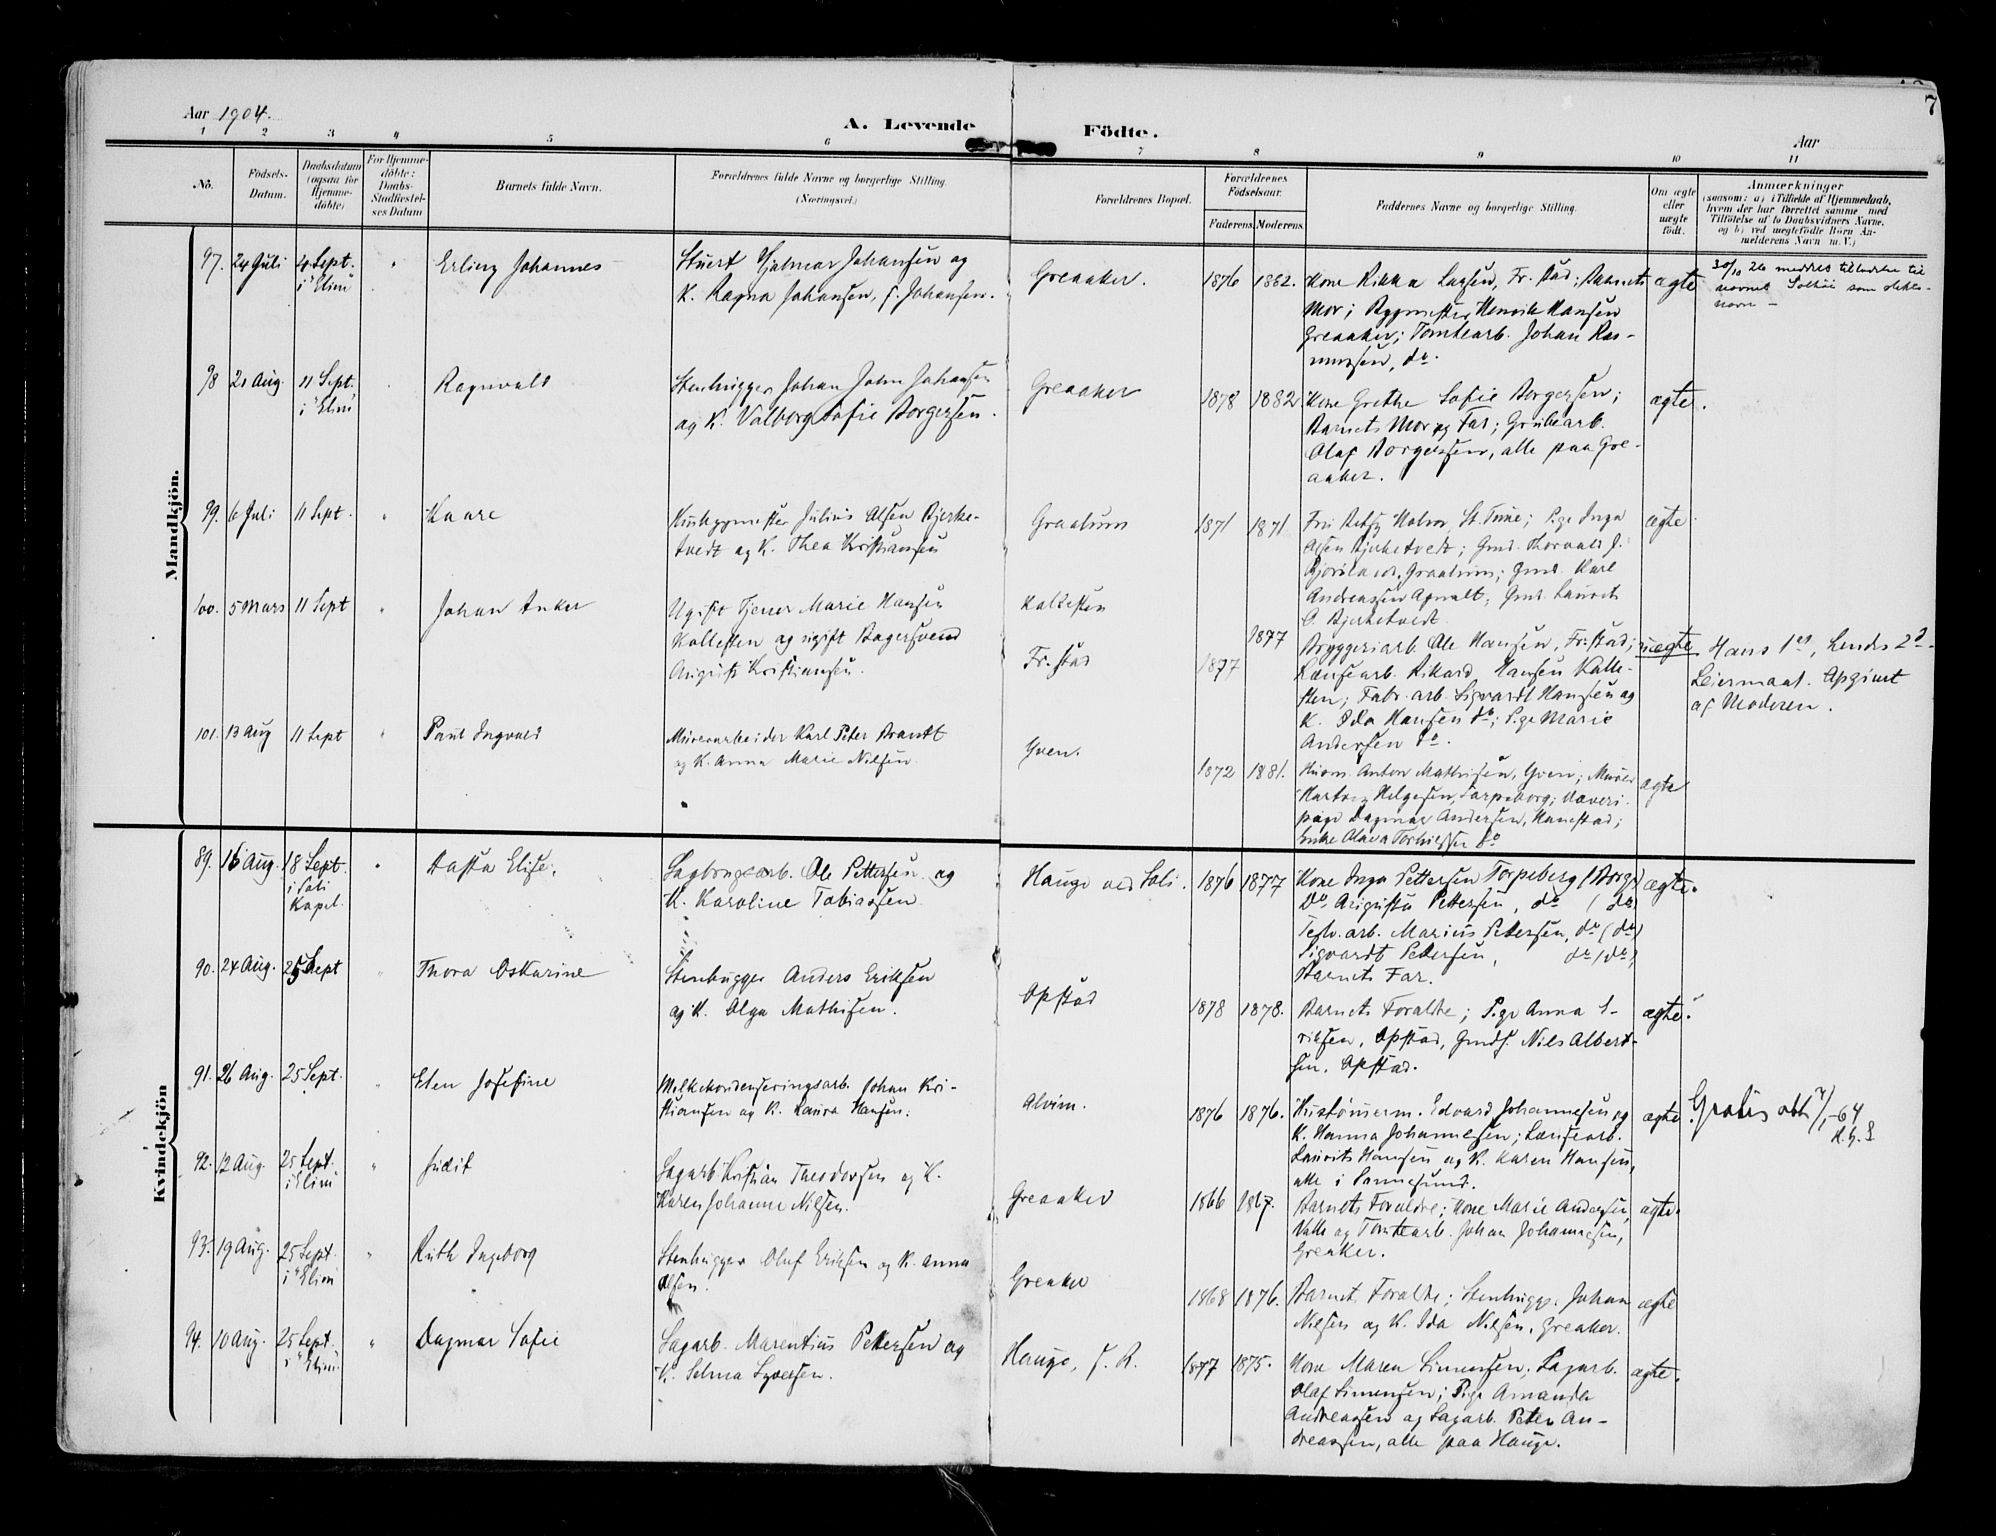 7
Aar 1904.
A. Levende Födte.
Aar
1 2 3 4 5 6 7 8 9 10 11
No.
Fødsels-Datum.
Daabsdatum (ogsaa for Hjemmedöbte)
For Hjemmedöbte: Daabs-Stadfæstelses Datum
Barnets fulde Navn.
Forældrenes fulde Navne og borgerlige Stilling. (Næringsvei.)
Forældrenes Bopæl.
Forældrenes Födselsaar.
Faderens. Moderens.
Faddernes Navne og borgerlige Stilling.
Om ægte eller uægte födt.
Anmærkninger
(saasom: a) i Tilfælde af Hjemmedaab, hvem der har forrettet samme, med Tilföielse af to Daabsvidners Navne, og b) ved uægtefödte Börn Anmelderens Navn m. V.)
Mandkjön.
97. 24 Juli 4 Sept. i "Elim" " Erling Johannes
Stuert Hjalmar Johansen og
K. Ragna Johansen, f. Johansen.
Greaaker. 1876 1882.
Kone Rikka Larsen, Fr.stad; Barnets
Mor; Bygmester Henrik Hansen
Greaaker; Tomtearb. Johan Ras-
mussen, do.
ægte
30/10 26 meddelt tilladelse til
navnet Solhøi som slekts-
navn -
98 21 Aug. 11 Sept. i "Elim" Ragnvald
Stenhugger Johan John Johansen
og K. Valborg Sofie Borgersen.
Greaaker 1878 1882
Kone Grethe Sofie Borgersen;
Barnets Mor og Far; Grubearb.
Olaf Borgersen, alle paa Gre-
aaker.
ægte.
99. 6 Juli 11 Sept. " Kaare
Husbygmester Julius Olsen Bjerke-
tvedt og K. Thea Kristiansen
Graalum 1871 1871.
Fru Betsy Holm, St. Tune; Pige Inga
Olsen Bjerketvedt; Grd. Thorvald J.
Graalum; Grd. Karl
Andreassen Agnalt; Grd. Laurits
O. Bjerketvedt.
ægte
100. 5 Mars 11 Sept " Johan Anker
Ugift Tjener Marie Hansen
Kallesten og ugift Bagersvend
August Kristiansen.
Kallesten
Fr.stad
1877 1877
Bryggeriarb. Ole Hansen, Fr.stad;
Lændsearb. Rikard Hansen Kalle-
sten; Fabr.arb. Sigvardt Hansen og
K. Ida Hansen do; Pige Marie
Andersen do.
uægte
Hans 1st, hendes 2d
Leiermaal. Opgivet
af Moderen.
101. 13 Aug 11 Sept " Paul Ingvald
Murerarbeider Karl Peter Brandt
og K. Anna Marie Nilsen.
Yven. 1872 1881.
Husm. Anton Mathisen, Yven; Murer
Hartvig Helgesen, Torpeborg; Væveri-
pige Dagmar Andersen, Hanestad;
Enke Olava Torkilsen do
ægte
Kvindekjön
89. 16 Aug. 18 Sept. i Soli Kapel. " Aasta Elise.
Sagbrugsarb. Ole Pettersen og
K. Karoline Tobiassen.
Hauge ved Soli. 1876 1877
Kone Inga Pettersen Torpeberg (Borge)
Do Augusta Pettersen, do (do)
Teglv.arb. Marius Petersen, do (do)
Sigvardt Petersen, do (do)
Barnets Far.
ægte.
90. 24 Aug. 25 Sept " Thora Oskarine
Stenhugger Anders Eriksen
og K. Olga Mathisen.
Opstad 1878 1878.
Barnets Forældre; Pige Anna E-
riksen, Opstad, Grdf. Nils Albert-
sen, Opstad.
ægte.
91. 26 Aug. 25 Sept. " Elen Josefine
Melkekondenseringsarb. Johan Kri-
stiansen og K. Laura Hansen.
Alvim. 1876 1876.
Hustømmerm. Edvard Johannesen og
K. Hanna Johannesen; Lænsearb.
Laurits Hansen og K. Karen Hansen,
alle i Sannesund.
ægte
Gratis att 7/1-64
92. 12 Aug. 25 Sept. i "Elim" " Judit
Sagarb Kristian Theodorsen og K.
Karen Johanne Nilsen.
Greaaker 1866 1867.
Barnets Forældre; Kone Marie Andersen,
Valle og Tomtearb. Johan Johannesen,
Greaker.
ægte.
93. 19 Aug. 25 Sept. i "Elim" " Ruth Ingeborg
Stenhugger Oluf Eriksen og K. Anna
Olsen.
Greaker 1868 1876.
Barnets Forældre; Stenhugger Johan
Nilsen og K. Ida Nilsen, Greaker.
ægte
94. 10 Aug. 25 Sept. i "Elim" " Dagmar Sofie
Sagarb. Marentius Pettersen og
K. Selma Syversen.
Hauge, S. R. 1877 1875.
Kone Maren Simensen; Sagarb.
Olaf Simensen; Pige Amanda
Andreassen og Sagarb. Peter An-
dreassen, alle paa Hauge.
ægte.